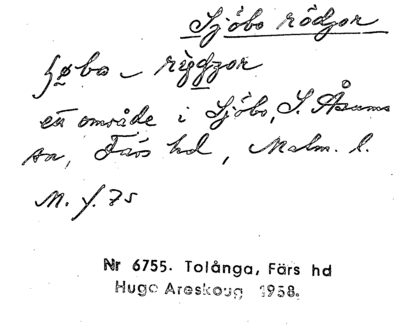 Sjöbo rödjor
ʃøbo – rỳdzor
en område i Sjöbo, S. Åsums
sn, Färs hd, Malm. l.
M. f. 75
Nr 6755. Tolånga, Färs hd
Hugo Areskoug 1958.